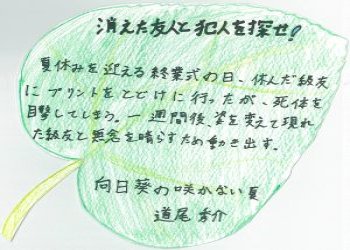 消えた友人と犯人を探せ！
夏休みを迎える終業式の日、休んだ級友
にプリントをとどけに行ったが、死体を
目撃してしまう。一週間後、姿を変えて現れ
た級友と無念を晴らすため動き出す。
向日葵の咲かない夏
道尾秀介